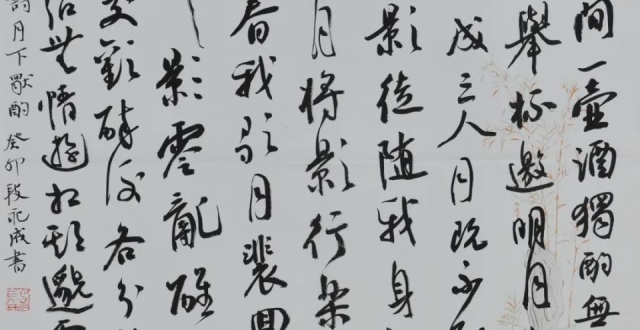 間一壺酒獨酌無
舉杯邀明月
成三人月既不
影徒隨我身
月將影行樂
春我歌月裴回
影零亂醒
交歡醉後各分
結無情遊相期邈雲
詩月下獨酌癸卯段成書